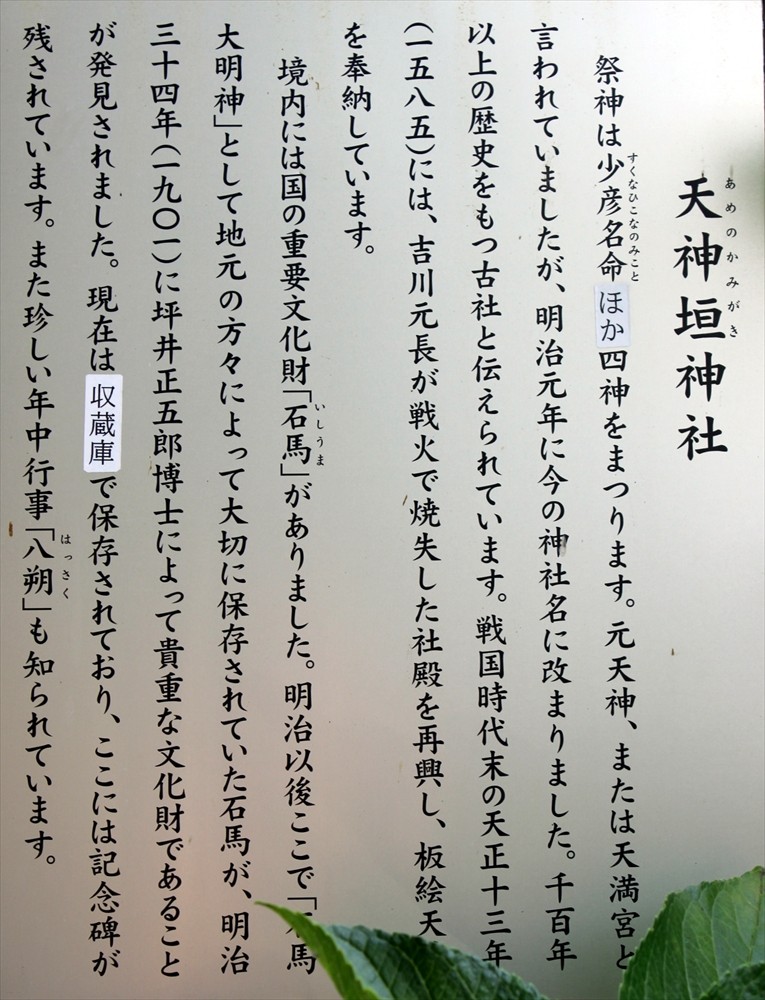 天神垣神社
あめのかみがき
祭神は少彦名命ほか四神をまつります。元天神、または天満宮と
すくなひこなのみこと
言われていましたが、明治元年に今の神社名に改まりました。千百年
以上の歴史をもつ古社と伝えられています。戦国時代末の天正十三年
(一五八五)には、吉川元長が戦火で焼失した社殿を再興し、板絵天
を奉納しています。
境内には国の重要文化財「石馬」がありました。明治以後ここで「石馬
いしうま
大明神」として地元の方々によって大切に保存されていた石馬が、明治
三十四年(一九〇一)に坪井正五郎博士によって貴重な文化財であること
が発見されました。現在は収蔵庫で保存されており、ここには記念碑が
残されています。また珍しい年中行事「八朔」も知られています。
はっさく